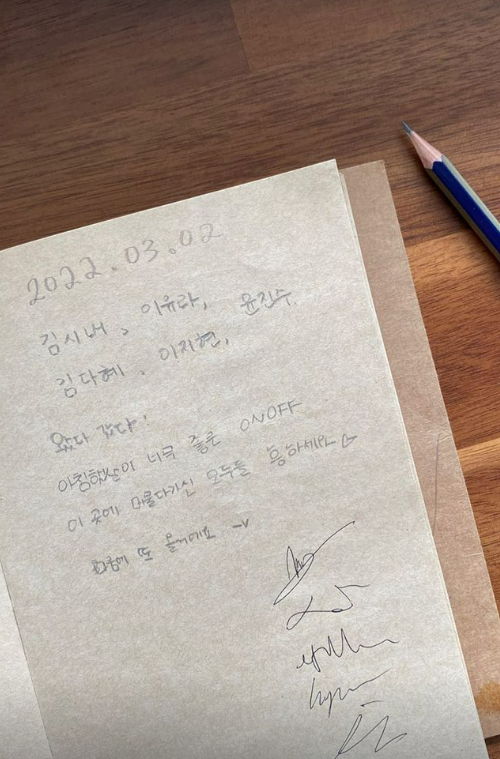 2022.03.02
김시내, 이유라, 윤진수
김다혜, 이지현,
왔다 갔다!
아침햇살이 너무 좋은 ONOFF
이 곳에 머물다가신 모두들 흥하세요
다음에 또 올게에요 ~v